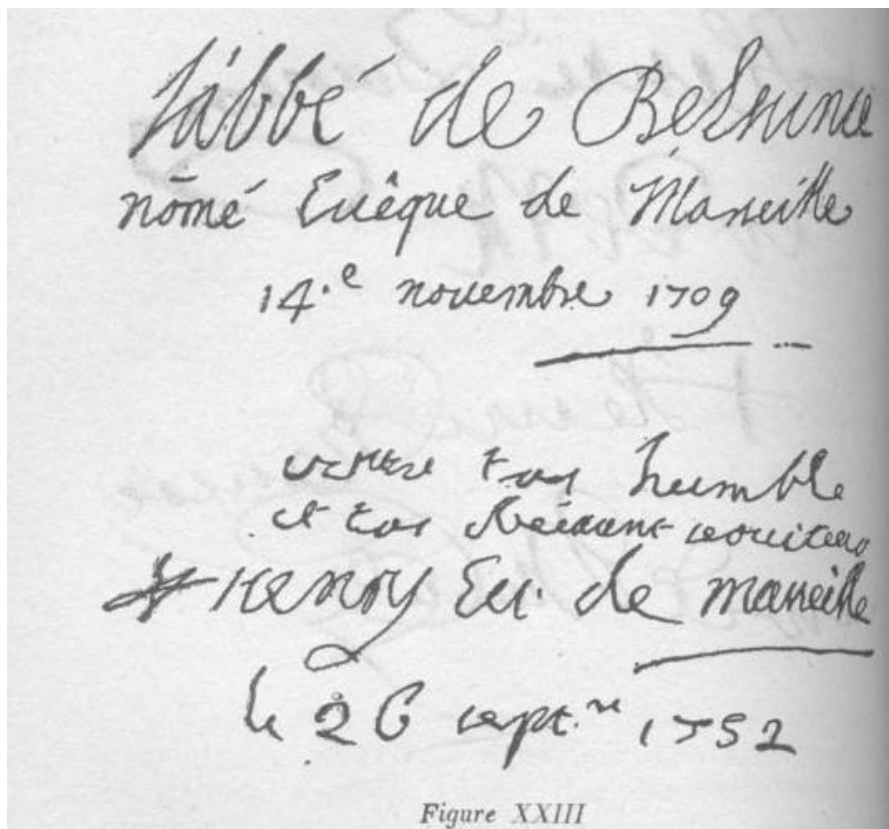 L'abbé de Belsunce
nōmé Euêque de Marseille
14.e nouembre 1709
votre tres humble
et tres obeissant seruiteur
+ Henry Eu. de marseille
le 26 sept.re 1752
Figure XXIII